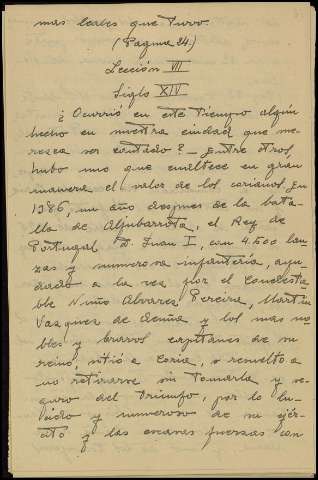 mas leales que tuvo
(Pagina 24.)
Lección VII
Siglo XIV
¿Ocurrió en este tiempo algún
hecho en nuestra ciudad que me-
rezca ser contado? - Entre otros,
hubo uno que enaltece en gran
manera el valor de los corianos. En
1386, un año despues de la bata-
lla de Aljubarrota, el Rey de
Portugal D. Juan I, con 4.500 lan-
zas y numerosa infantería, ayu-
dado a la vez por el Condesta-
ble Nuño Alvarez Pereira, Martin
Vazquez de Acuña y los mas no-
bles y bravos capitanes de su
reino, sitió a Coria, y resuelto a
no retirarse sin tomarla y se-
guro del triunfo, por lo lu-
cido y numeroso de su ejér-
cito y las escasas fuerzas con